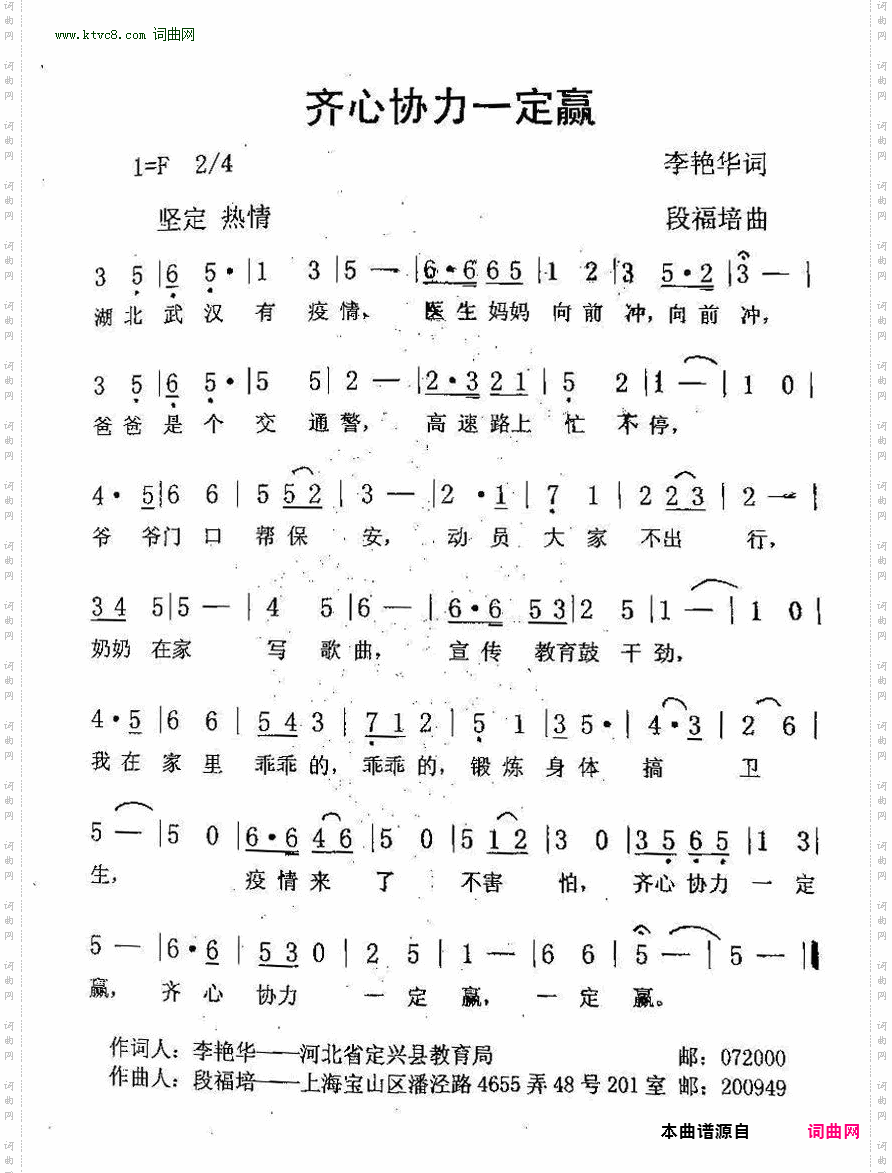 www.ktvc8.com 词曲网
齐心协力一定赢
1=F 2/4 李艳华词
坚定 热情 段福培曲
3 5 |6 5·|1 3|5 —|6·6 65|1 2|3 5·2|3—|
湖北武汉有疫情、医生妈妈向前冲,向前冲,
3 5|6 5·|5 5|2 —|2·321|5 2|1—|1 0|
爸爸是个交通警,高速路上忙不停,
4· 5|6 6|5 52|3—|2·1|7 1|2 23|2—|
爷爷门口帮保安,动员大家不出行,
34 5|5—|4 5|6—|6·6 53|2 5|1—|1 0|
奶奶在家写歌曲,宣传教育鼓干劲,
4·5|6 6|543|712|5 1|35·|4·3|2 6|
我在家里乖乖的,乖乖的,锻炼身体搞卫
5—|5 0|6·6 46|5 0|5 12|3 0|35 65|1 3|
生,疫情来了不害怕,齐心协力一定
5—|6·6|530|2 5|1—|6 6|5—|5—‖
赢,齐心协力一定赢,一定赢。
作词人:李艳华——河北省定兴县教育局 邮:072000
作曲人:段福培——上海宝山区潘泾路4655弄48号201室 邮:200949
本曲谱源自 词曲网